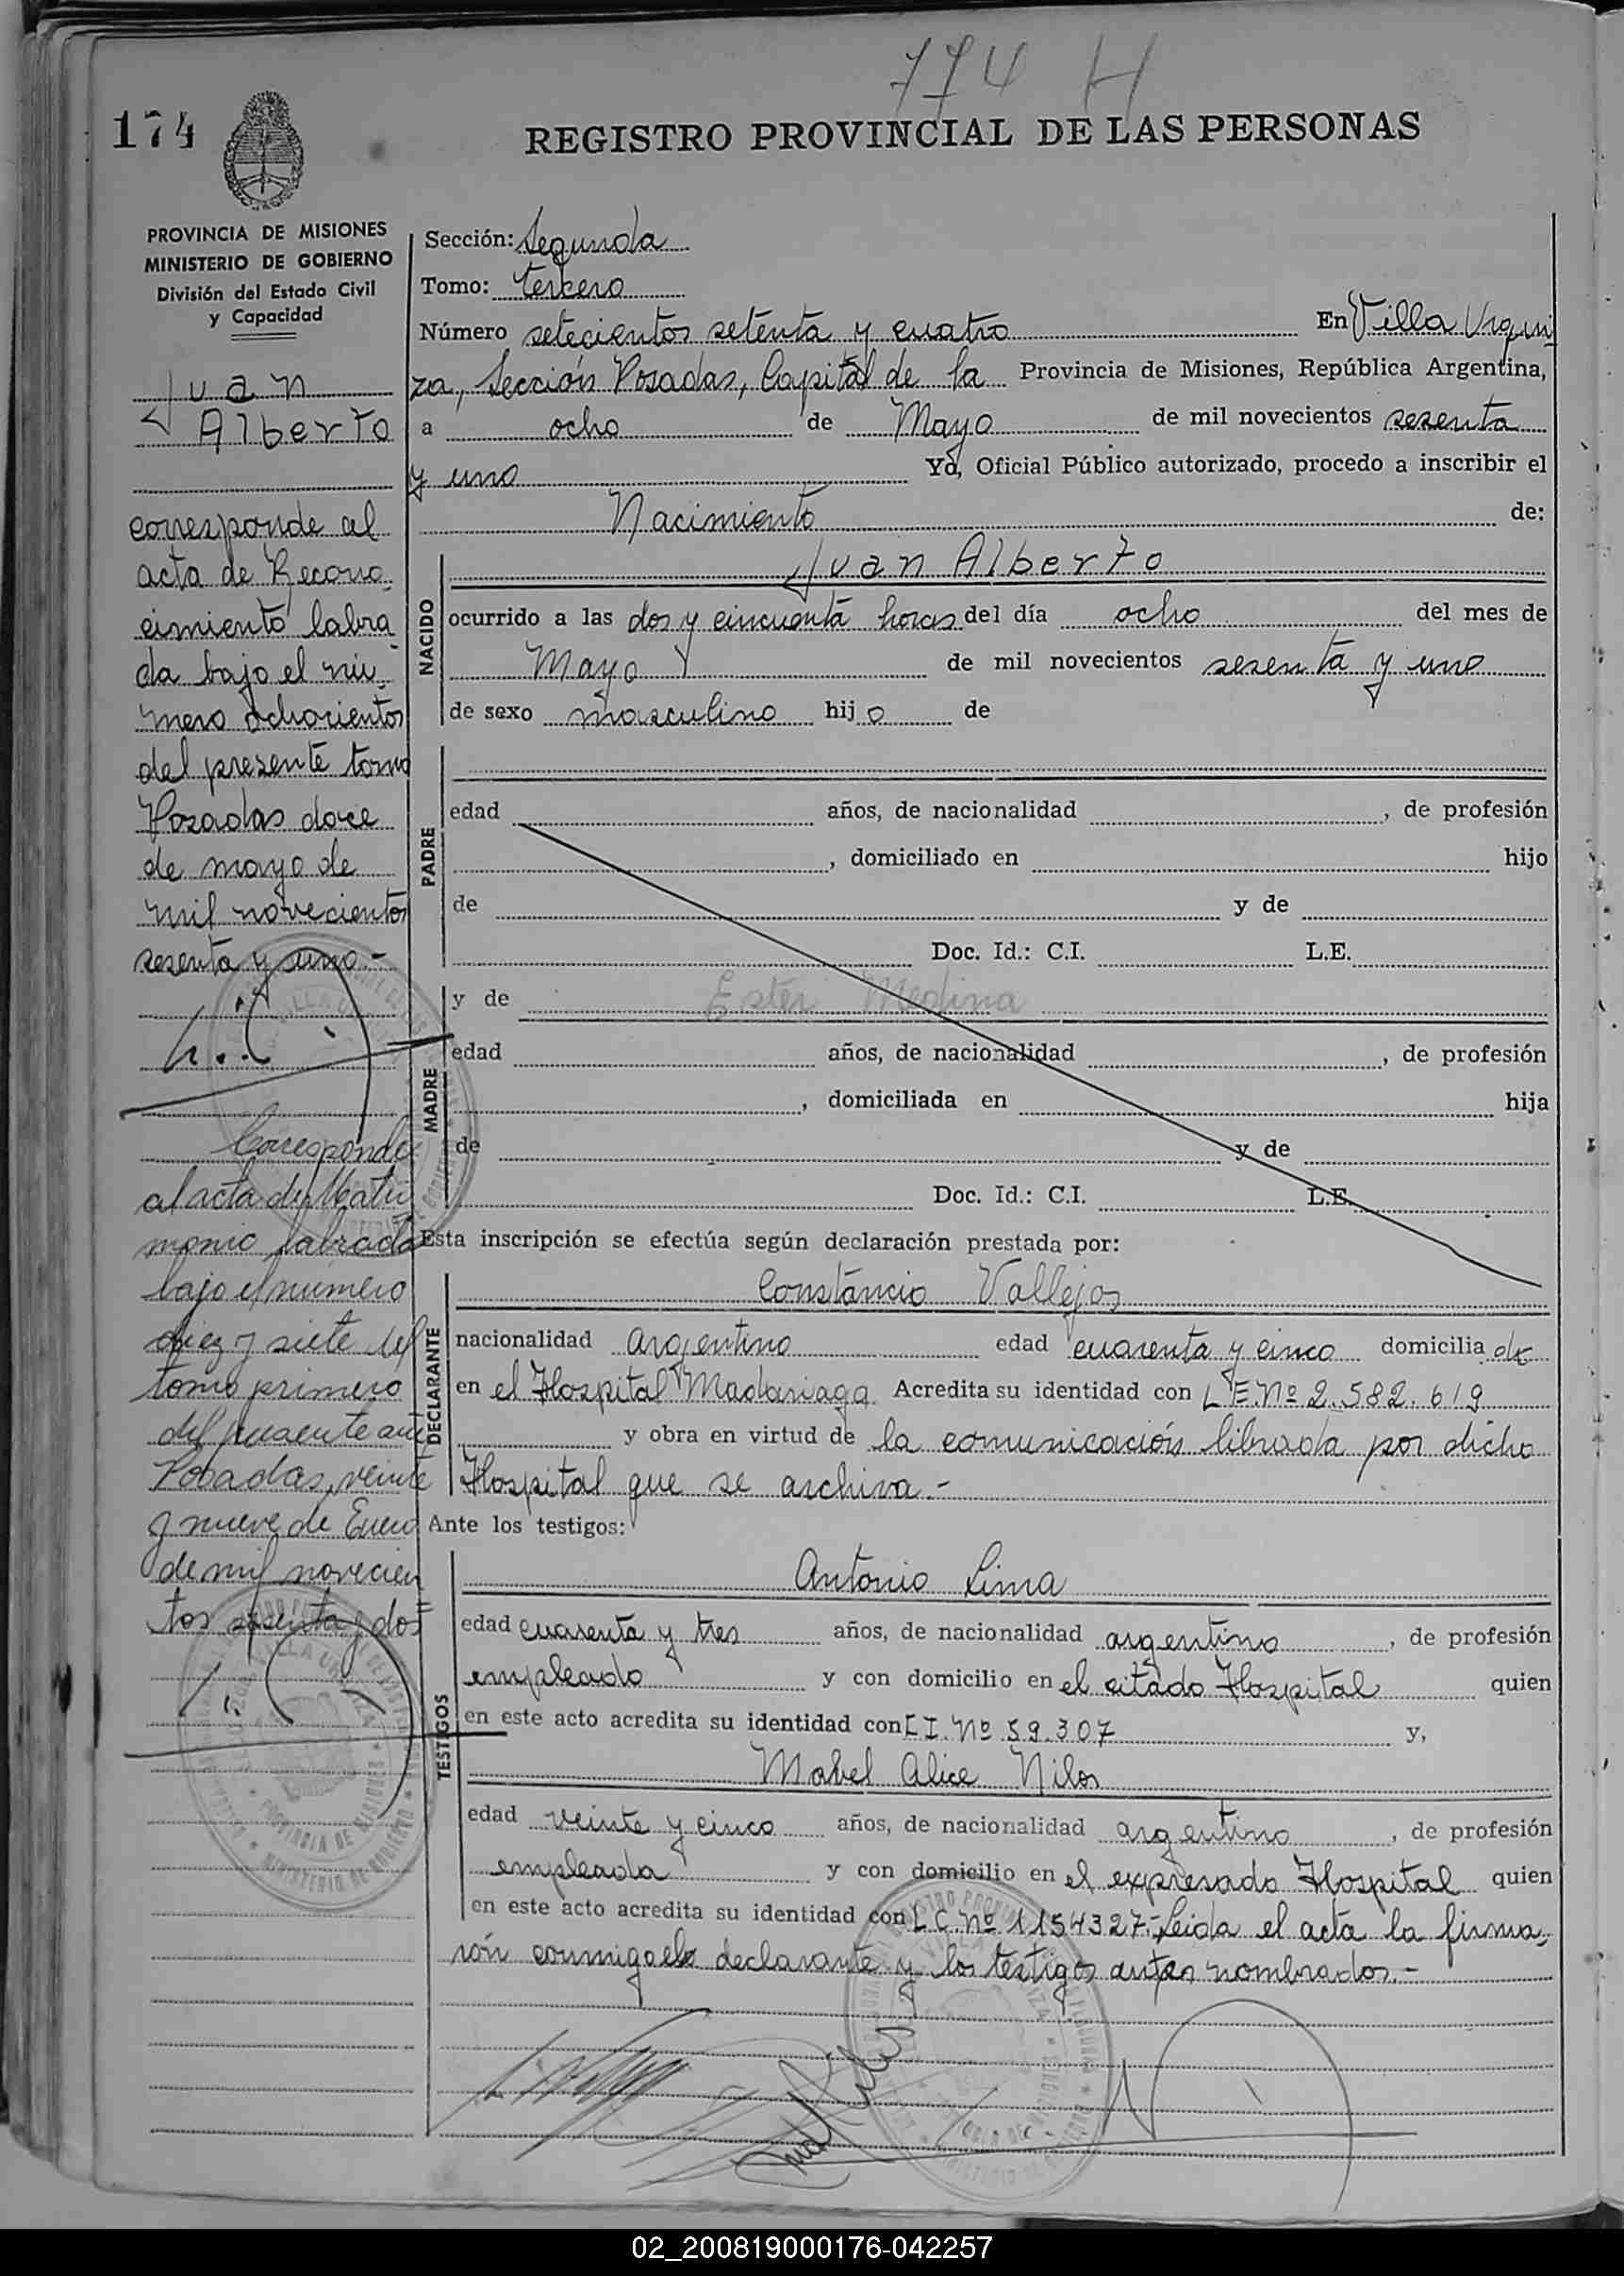 774 H
174
REGISTRO PROVINCIAL DE LAS PERSONAS
PROVINCIA DE MISIONES
MINISTERIO DE GOBIERNO
División del Estado Civil
y Capacidad
Juan
Alberto
corresponde al
acta de Recono
cimiento labra
da bajo el nú
mero ochocientos
del presente tomo
Posadas doce
de mayo de
mil novecientos
sesenta y uno.-
Corresponde
al acta de Matri
monio labrada
bajo el número
diez y siete del
tomo primero
del presente año
Posadas, veinte
y nueve de Enero
de mil novecien
tos sesenta y dos
Sección: Segunda
Tomo: tercero
Número setecientos setenta y cuatro En Villa Urqui
za, Sección Posadas, Capital de la Provincia de Misiones, República Argentina,
a ocho de Mayo de mil novecientos sesenta
y uno Yo, Oficial Público autorizado, procedo a inscribir el
Nacimiento de:
NACIDO
Juan Alberto
ocurrido a las dos y cincuenta horas del día ocho del mes de
Mayo de mil novecientos sesenta y uno
de sexo masculino hijo de
PADRE
edad años, de nacionalidad , de profesión
, domiciliado en hijo
de y de
Doc. Id.: C.I. L.E.
MADRE
y de Ester Medina
edad años, de nacionalidad , de profesión
, domiciliada en hija
de y de
Doc. Id.: C.I. L.E.
Esta inscripción se efectúa según declaración prestada por:
DECLARANTE
Constancio Vallejos
nacionalidad argentino edad cuarenta y cinco domicilia do
en el Hospital Madariaga Acredita su identidad con L E. Nº 2.582.619
y obra en virtud de la comunicación librada por dicho
Hospital que se archiva.-
Ante los testigos:
TESTIGOS
Antonio Lima
edad cuarenta y tres años, de nacionalidad argentino , de profesión
empleado y con domicilio en el citado Hospital quien
en este acto acredita su identidad con C I. Nº 59.307 y,
Mabel Alice Nilos
edad veinte y cinco años, de nacionalidad argentino , de profesión
empleada y con domicilio en el expresado Hospital quien
en este acto acredita su identidad con L C. Nº 1154327.- Leida el acta la firma
rón conmigo el declarante y los testigos antes nombrados.-
02_200819000176-042257